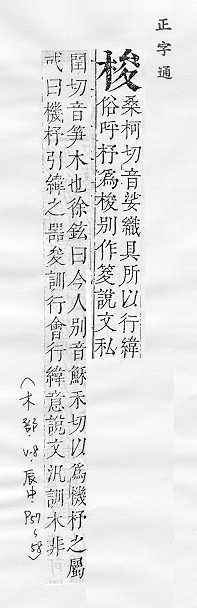 正字通
梭
桑柯切音娑織具所以行緯
俗呼杼爲梭別作䇣說文私
閏切音笋木也徐鉉曰今人別音穌禾切以爲機杼之屬
或曰機杼引緯之器夋訓行會行緯意說文汎訓木非
(木部.V.8.辰中.P57~58)